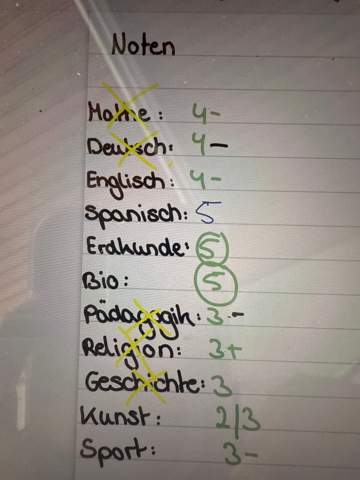 Noten
Mathe: 4-
Deutsch: 4-
Englisch: 4-
Spanisch: 5
Erdkunde: 5
Bio: 5
Pädagogik: 3-
Religion: 3+
Geschichte: 3
Kunst: 2/3
Sport: 3-